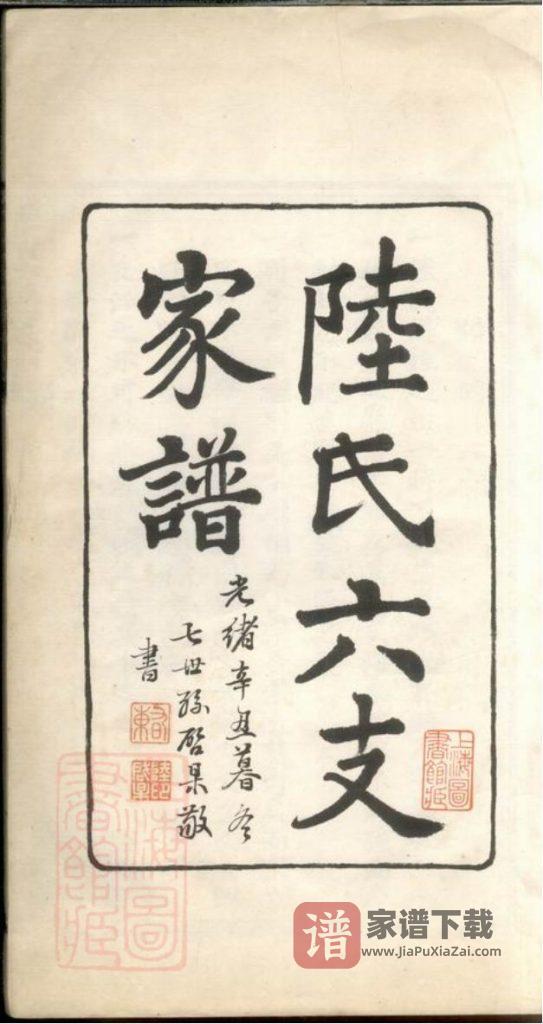 陸氏六支
家譜
光緒辛丑暮冬
七世孫啓杲敬
書
上海圖書館藏
上海圖書館藏
谱
家谱下载
www.JiaPuXiaZai.com